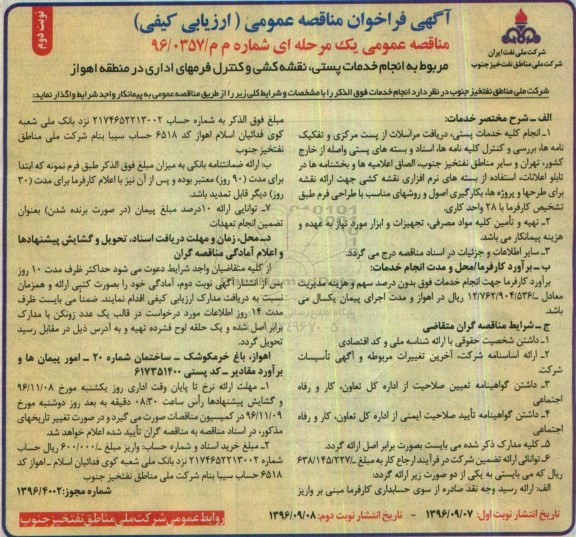 آگهی فراخوان مناقصه عمومی ( ارزیابی کیفی)
نوبت دوم
مناقصه عمومی یک مرحله ای شماره م م/۹۶/۰۳۵۷
مربوط به انجام خدمات پستی، نقشه کشی و کنترل فرمهای اداری در منطقه اهواز
شرکت ملی نفت ایران
شرکت ملی مناطق نفتخیز جنوب
شرکت ملی مناطق نفتخیز جنوب در نظر دارد انجام خدمات فوق الذکر را با مشخصات و شرایط کلی زیر را از طریق مناقصه عمومی به پیمانکار واجد شرایط واگذار نماید:
الف ـ شرح مختصر خدمات:
۱ـ انجام کلیه خدمات پستی، دریافت مراسلات از پست مرکزی و تفکیک
نامه ها، بررسی و کنترل کلیه نامه ها، اسناد و بسته های پستی واصله از خارج
کشور، تهران و سایر مناطق نفتخیز جنوب، الصاق اعلامیه ها و بخشنامه ها در
تابلو اعلانات، استفاده از بسته های نرم افزاری نقشه کشی جهت ارائه نقشه
برای طرحها و پروژه ها، بکارگیری اصول و روشهای مناسب با طراحی فرم طبق
تشخیص کارفرما با ۲۸ واحد کاری.
۲ـ تهیه و تأمین کلیه مواد مصرفی، تجهیزات و ابزار مورد نیاز به عهده و
هزینه پیمانکار می باشد.
۳ـ سایر اطلاعات و جزئیات در اسناد مناقصه درج می گردد.
ب ـ برآورد کارفرما/محل و مدت انجام خدمات:
برآورد کارفرما جهت انجام خدمات فوق بدون درصد سهم و هزینه مدیریت
معادل ـ/۱۲/۷۶۲/۹۰۴/۵۳۶ ریال در اهواز و مدت اجرای پیمان یکسال می
باشد.
ج ـ شرایط مناقصه گران متقاضی
۱ـ داشتن شخصیت حقوقی با ارائه شناسه ملی و کد اقتصادی
۲ـ ارائه اساسنامه شرکت، آخرین تغییرات مربوطه و آگهی تأسیسات
شرکت
۳ـ داشتن گواهینامه تعیین صلاحیت از اداره کل تعاون، کار و رفاه
اجتماعی
۴ـ داشتن گواهینامه تأیید صلاحیت ایمنی از اداره کل تعاون، کار و رفاه
اجتماعی
۵ـ کلیه مدارک ذکر شده می بایست بصورت برابر اصل ارائه گردد.
۶ـ توانائی ارائه تضمین شرکت در فرآیند ارجاع کار به مبلغ ـ/۶۳۸/۱۴۵/۲۲۷
ریال که می بایستی به یکی از دو صورت زیر ارائه گردد:
الف: ارائه رسید وجه نقد صادره از سوی حسابداری کارفرما مبنی بر واریز
مبلغ فوق الذکر به شماره حساب ۲۱۷۴۶۵۲۲۱۳۰۰۲ نزد بانک ملی شعبه
کوی فدائیان اسلام اهواز کد ۶۵۱۸ حساب سیبا بنام شرکت ملی مناطق
نفتخیز جنوب
ب: ارائه ضمانتنامه بانکی به میزان مبلغ فوق الذکر طبق فرم نمونه که ابتدا
برای مدت (۹۰ روز) معتبر بوده و پس از آن نیز با اعلام کارفرما برای مدت (۳۰
روز) دیگر قابل تمدید باشد.
۷ـ توانایی ارائه ۱۰درصد مبلغ پیمان (در صورت برنده شدن) بعنوان
تضمین انجام تعهدات
د ـ محل، زمان و مهلت دریافت اسناد، تحویل و گشایش پیشنهادها
و اعلام آمادگی مناقصه گران
از کلیه متقاضیان واجد شرایط دعوت می شود حداکثر ظرف مدت ۱۰ روز
پس از انتشار آگهی نوبت دوم، آمادگی خود را بصورت کتبی ارائه و همزمان
نسبت به دریافت مدارک ارزیابی کیفی اقدام نمایند. ضمناً می بایست ظرف
مدت ۱۴ روز اطلاعات مورد درخواست در قالب یک عدد زونکن با مدارک
برابر اصل شده و یک حلقه لوح فشرده تهیه و به آدرس ذیل در مقابل رسید
تحویل گردد.
اهواز، باغ خرمکوشک ـ ساختمان شماره ۲۰ ـ امور پیمان ها و
برآورد مقادیر ـ کد پستی ۶۱۷۳۵۱۴۰۰
۱ـ مهلت ارائه نرخ تا پایان وقت اداری روز یکشنبه مورخ ۹۶/۱۱/۰۸
و گشایش پیشنهادها رأس ساعت ۰۸:۳۰ دقیقه به بعد روز دوشنبه مورخ
۹۶/۱۱/۰۹ در کمیسیون مناقصات صورت می گیرد و در صورت تغییر تاریخهای
مذکور، در اسناد مناقصه به مناقصه گران تأیید شده اعلام خواهد شد.
۲ـ مبلغ خرید اسناد و شماره حساب: واریز مبلغ ـ/۶۰۰/۰۰۰ ریال حساب
شماره ۲۱۷۴۶۵۲۲۱۳۰۰۲ نزد بانک ملی شعبه کوی فدائیان اسلام ـ اهواز کد
۶۵۱۸ حساب سیبا بنام شرکت ملی مناطق نفتخیز جنوب
شماره مجوز:۱۳۹۶/۴۰۰۲
تاریخ انتشار نوبت اول: ۱۳۹۶/۰۹/۰۷ - تاریخ انتشار نوبت دوم: ۱۳۹۶/۰۹/۰۸
روابط عمومی شرکت ملی مناطق نفتخیز جنوب